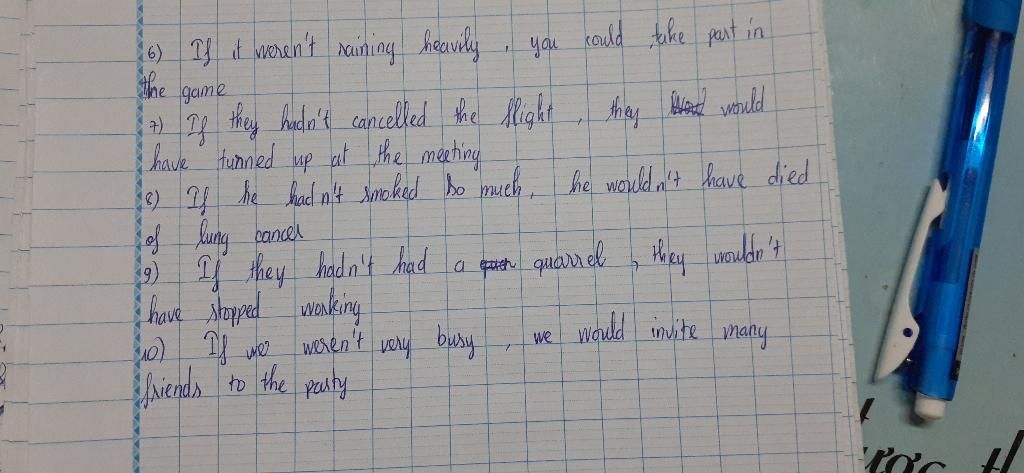 6) If it weren't raining heavily, you could take part in
the game
7) If they hadn't cancelled the flight, they would
have turned up at the meeting
8) If he hadn't smoked so much, he wouldn't have died
of lung cancer
9) If they hadn't had a quarrel, they wouldn't
have stopped working
10) If we weren't very busy, we would invite many
friends to the party